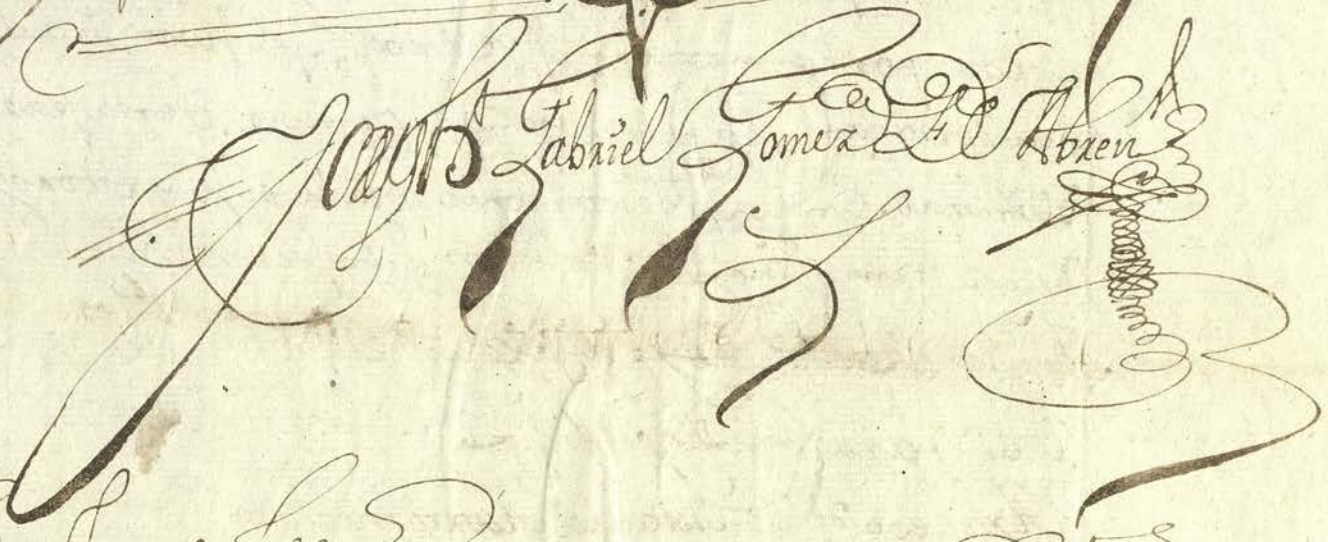 Joseph Gabriel Gomez De Abreu